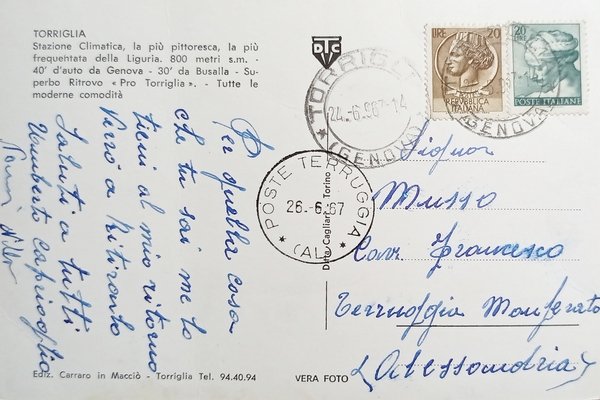 TORRIGLIA
Stazione Climatica, la più pittoresca, la più
frequentata della Liguria. 800 metri s.m. -
40' d'auto da Genova - 30' da Busalla - Su-
perbo Ritrovo « Pro Torriglia ». - Tutte le
moderne comodità
DTC
TORRIGLIA
24.-6.67-14
(GENOVA)
LIRE 20
REPUBBLICA
ITALIANA
20 LIRE
POSTE ITALIANE
(GENOVA)
POSTE TERRUGGIA
26.-6.67
(AL)
Per quella cosa
che tu sai me lo
tieni al mio ritorno
Verrò a Ritirarlo
Saluti a tutti
Umberto Caprioglio
Ditta Cagliari - Torino
Signor
Musso
Cav. Francesco
Terruggia Monferrato
(Alessandria)
Ediz. Carraro in Macciò - Torriglia Tel. 94.40.94
VERA FOTO